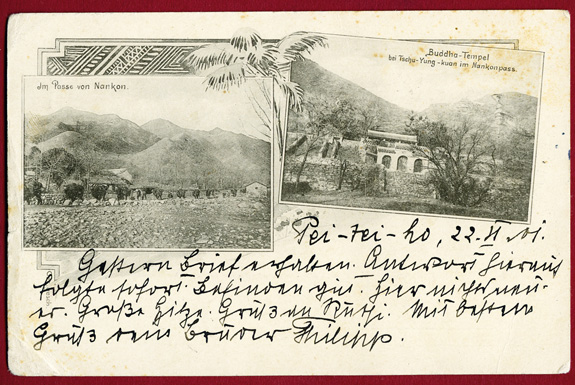 Im Passe von Nankon.
Buddha-Tempel
bei Tschu-Yung-kuan im Nankonpass.
Pei-tei-ho, 22. VI. 01.
Gestern Brief erhalten. Antwort hierauf
folgte sofort. Befinden gut. Hier nichts neu-
er. Große Hitze. Gruß an Ruthi. Mit bestem
Gruß dein Bruder Philipp.